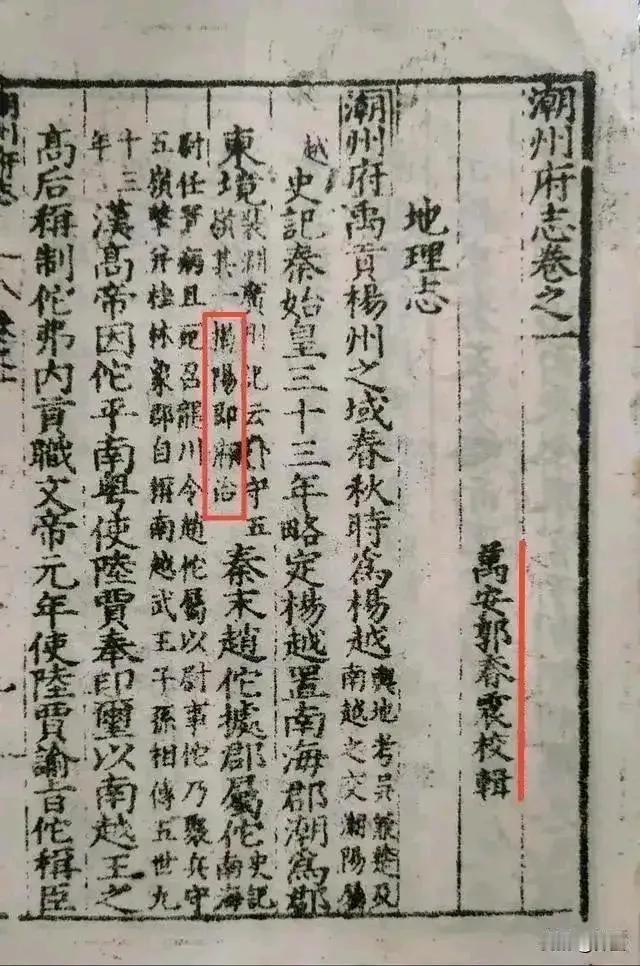 潮州府志卷之一
萬安郭春震校輯
地理志
潮州府禹貢楊州之域春秋時爲楊越輿地考吳楚及
南越之交潮陽屬
越
史記秦始皇三十三年略定楊越置南海郡潮爲郡
東境裴淵廣州記云守五
嶺其一揭陽即府治
秦末趙佗據郡屬佗史記
南海
尉任囂病且死召龍川令趙佗屬以尉事佗乃聚兵守
五嶺擊并桂林象郡自稱南越武王子孫相傳五世九
十三
年
漢高帝因佗平南粤使陸賈奉印璽以南越王之
高后稱制佗弗内貢職文帝元年使陸賈諭旨佗稱臣
潮州府志